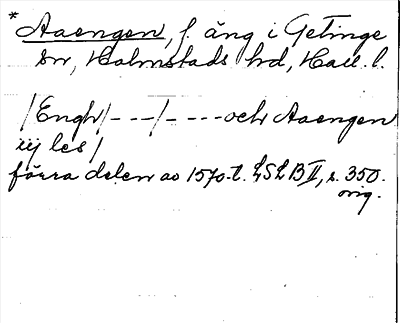 * Aaengen, f. äng i Getinge
sn, Halmstads hd, Hall. l.
/Engh/- - -/- - - - och Aaengen
iij les/
förra delen av 1570-t. LSLB II, s. 350.
orig.